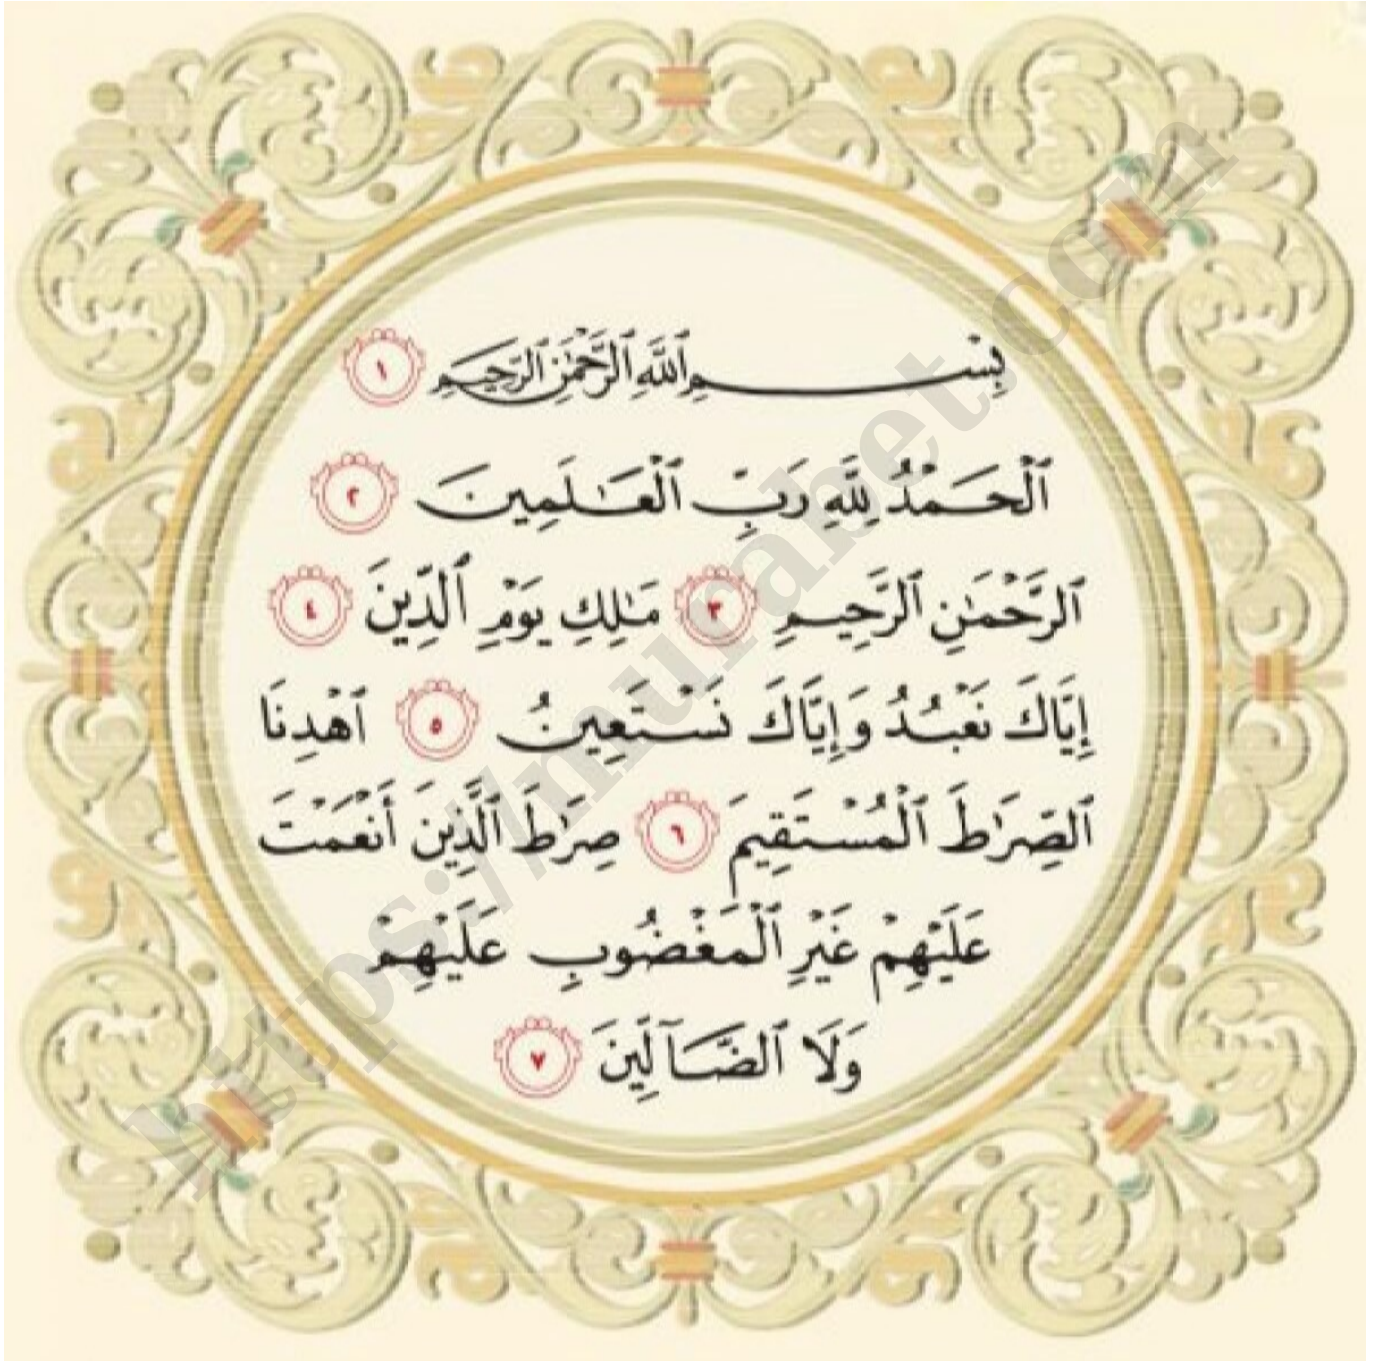 بِسۡمِ ٱللَّهِ ٱلرَّحۡمَٰنِ ٱلرَّحِيمِ ١
ٱلۡحَمۡدُ لِلَّهِ رَبِّ ٱلۡعَٰلَمِينَ ٢
ٱلرَّحۡمَٰنِ ٱلرَّحِيمِ ٣ مَٰلِكِ يَوۡمِ ٱلدِّينِ ٤
إِيَّاكَ نَعۡبُدُ وَإِيَّاكَ نَسۡتَعِينُ ٥ ٱهۡدِنَا
ٱلصِّرَٰطَ ٱلۡمُسۡتَقِيمَ ٦ صِرَٰطَ ٱلَّذِينَ أَنۡعَمۡتَ
عَلَيۡهِمۡ غَيۡرِ ٱلۡمَغۡضُوبِ عَلَيۡهِمۡ
وَلَا ٱلضَّآلِّينَ ٧
https://murabet.com